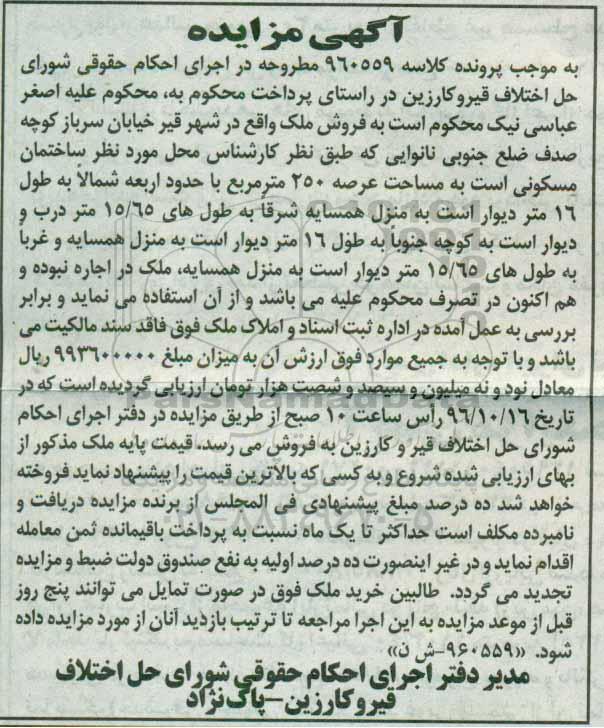 آگهی مزایده
به موجب پرونده کلاسه ۹۶۰۵۵۹ مطروحه در اجرای احکام حقوقی شورای
حل اختلاف قیروکارزین در راستای پرداخت محکوم به، محکوم علیه اصغر
عباسی نیک محکوم است به فروش ملک واقع در شهر قیر خیابان سرباز کوچه
صدف ضلع جنوبی نانوایی که طبق نظر کارشناس محل مورد نظر ساختمان
مسکونی است به مساحت عرصه ۲۵۰ مترمربع با حدود اربعه شمالاً به طول
۱۶ متر دیوار است به منزل همسایه شرقاً به طول های ۱۵/۶۵ متر درب و
دیوار است به کوچه جنوباً به طول ۱۶ متر دیوار است به منزل همسایه و غرباً
به طول های ۱۵/۶۵ متر دیوار است به منزل همسایه، ملک در اجاره نبوده و
هم اکنون در تصرف محکوم علیه می باشد و از آن استفاده می نماید و برابر
بررسی به عمل آمده در اداره ثبت اسناد و املاک ملک فوق فاقد سند مالکیت می
باشد و با توجه به جمیع موارد فوق ارزش آن به میزان مبلغ ۹۹۳۶۰۰۰۰۰ ریال
معادل نود و نه میلیون و سیصد و شصت هزار تومان ارزیابی گردیده است که در
تاریخ ۹۶/۱۰/۱۶ رأس ساعت ۱۰ صبح از طریق مزایده در دفتر اجرای احکام
شورای حل اختلاف قیر و کارزین به فروش می رسد. قیمت پایه ملک مذکور از
بهای ارزیابی شده شروع و به کسی که بالاترین قیمت را پیشنهاد نماید فروخته
خواهد شد ده درصد مبلغ پیشنهادی فی المجلس از برنده مزایده دریافت و
نامبرده مکلف است حداکثر تا یک ماه نسبت به پرداخت باقیمانده ثمن معامله
اقدام نماید و در غیر اینصورت ده درصد اولیه به نفع صندوق دولت ضبط و مزایده
تجدید می گردد. طالبین خرید ملک فوق در صورت تمایل می توانند پنج روز
قبل از موعد مزایده به این اجرا مراجعه تا ترتیب بازدید آنان از مورد مزایده داده
شود. «۹۶۰۵۵۹-ش ن»
مدیر دفتر اجرای احکام حقوقی شورای حل اختلاف
قیروکارزین-پاک‌نژاد